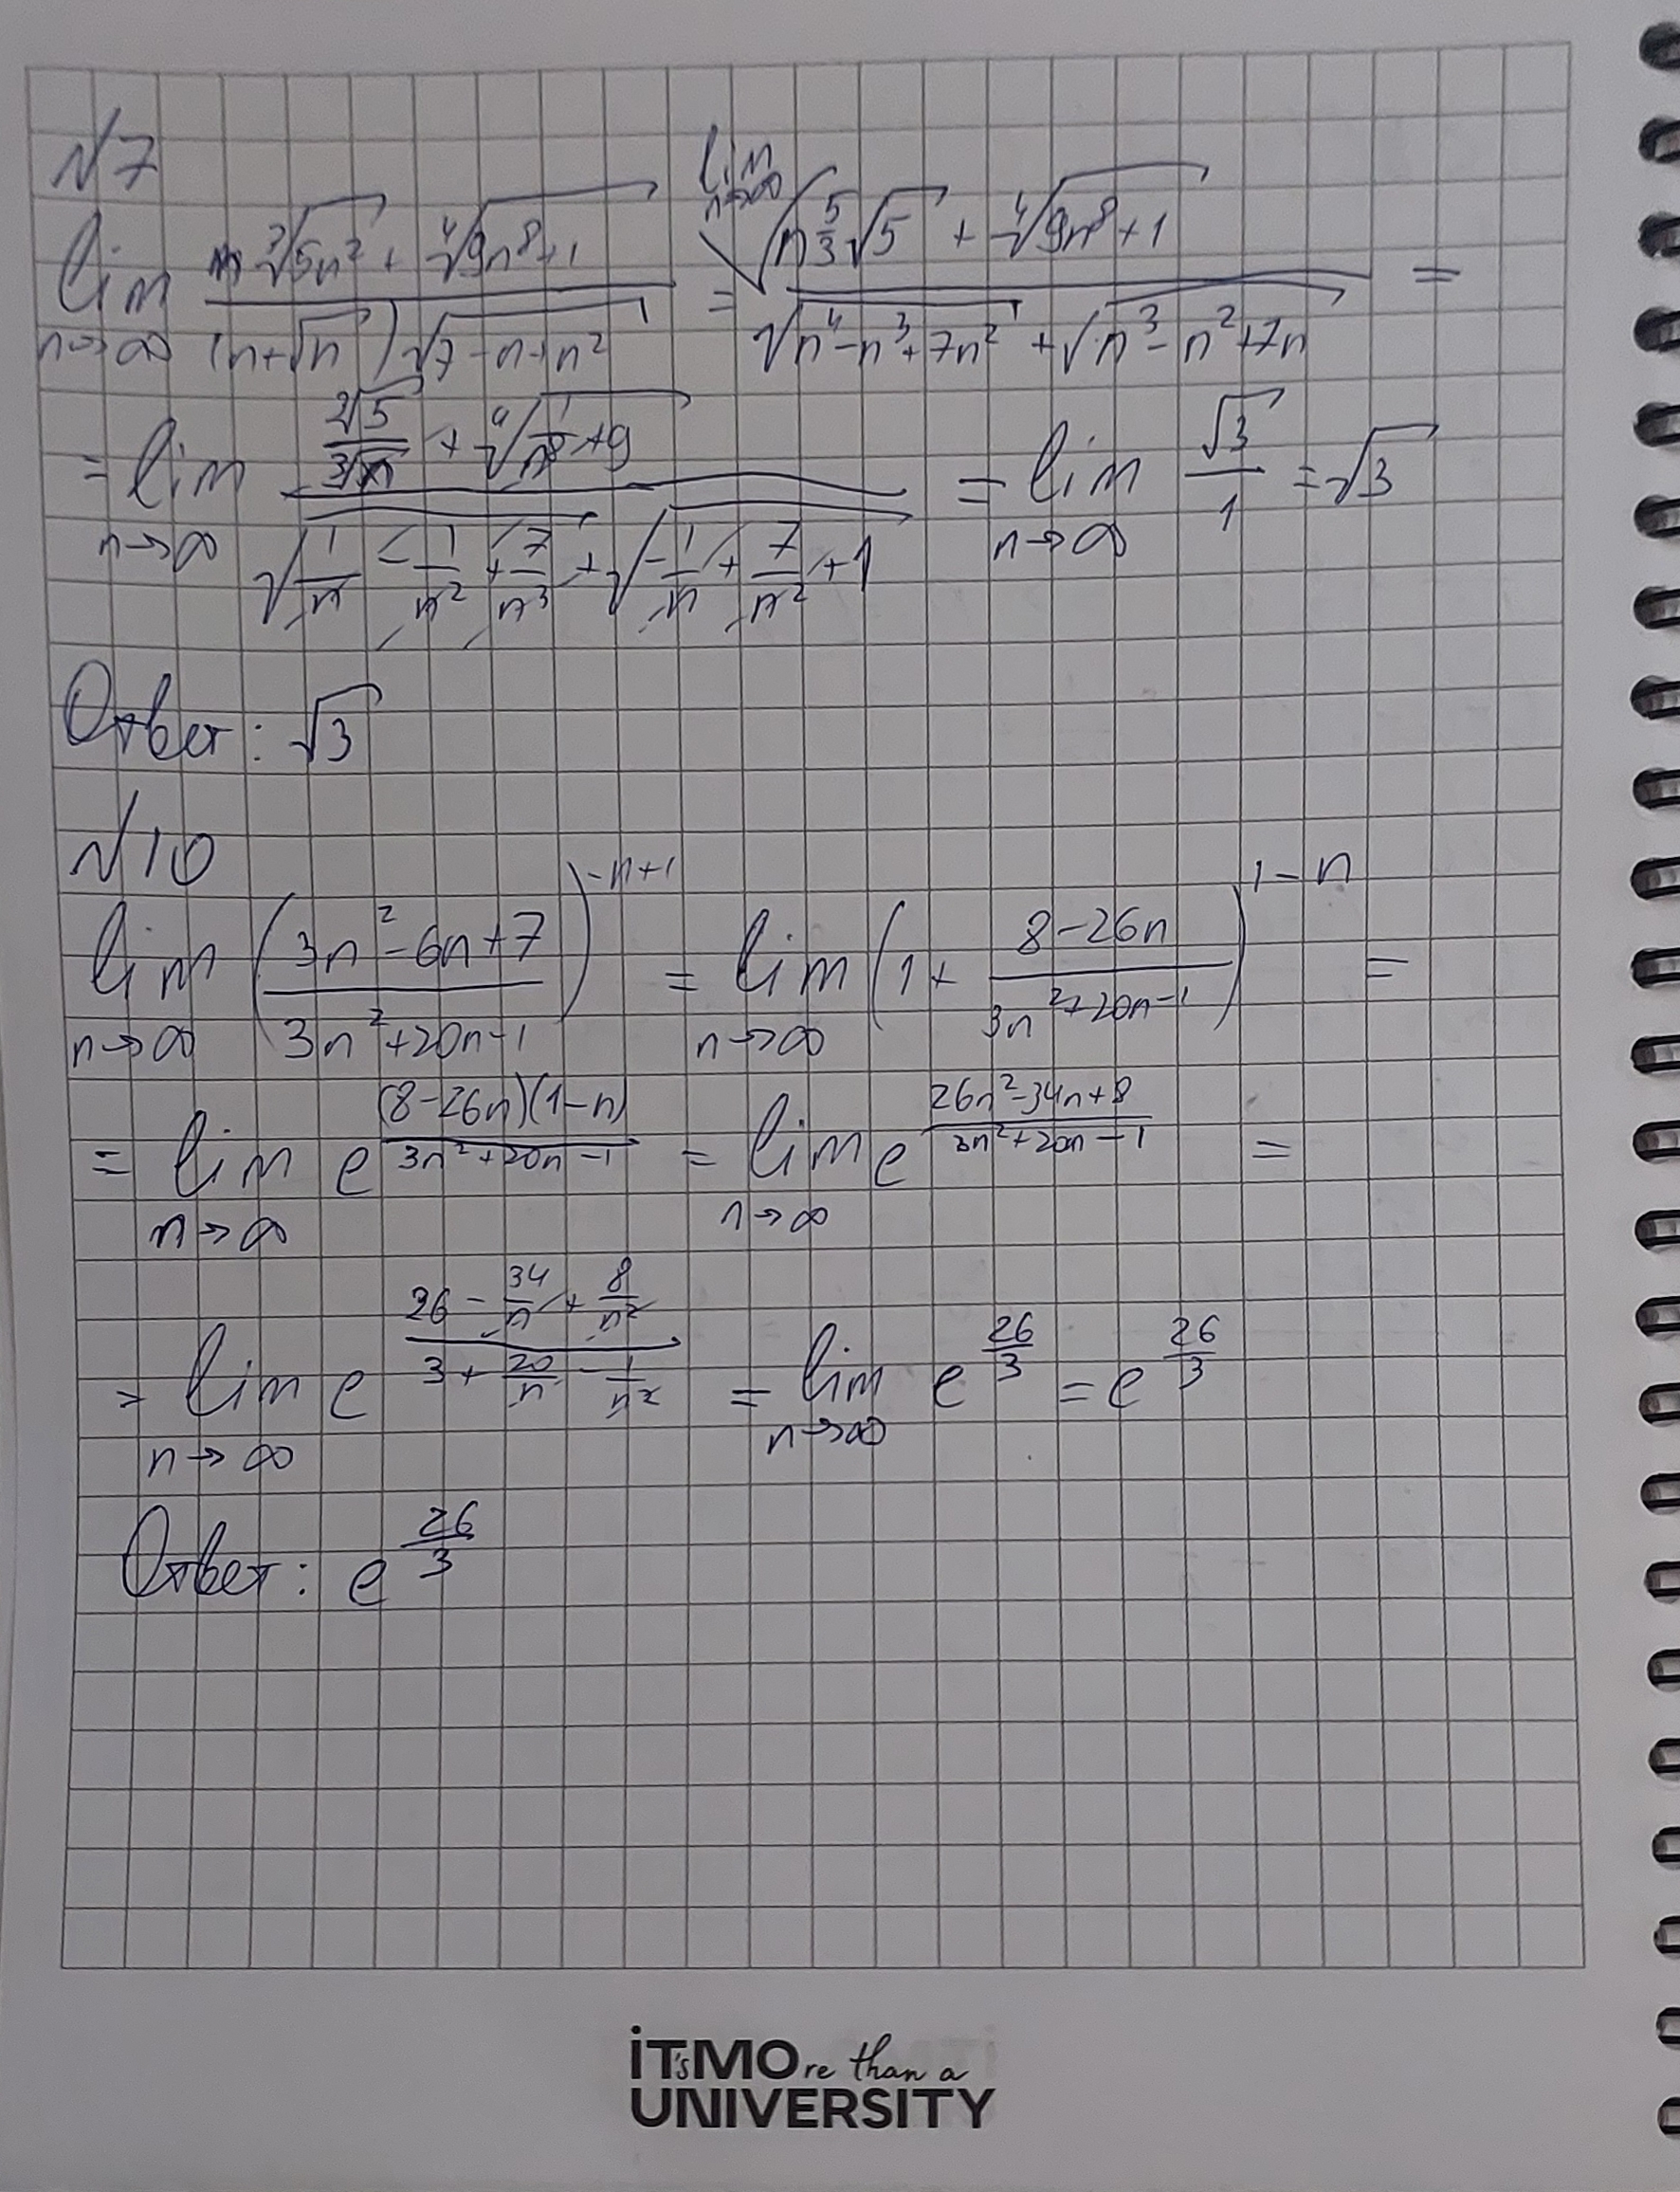 √7
lim n→∞ (n ∛(5n²) + ∜(9n⁸+1)) / ((n+√n)√(7-n+n²)) = lim n→∞ (n^(5/3) √5 + ∜(9n⁸+1)) / (√(n⁴-n³+7n²) + √(n³-n²+7n)) =
= lim n→∞ (∛5/∛n + ∜(1/n⁸+9)) / (√(1/n - 1/n² + 7/n³) + √(-1/n + 7/n² + 1)) = lim n→∞ √3/1 = √3
Ответ: √3
√10
lim n→∞ ((3n²-6n+7)/(3n²+20n-1))^(-n+1) = lim n→∞ (1+ (8-26n)/(3n²+20n-1))^(1-n) =
= lim n→∞ e^((8-26n)(1-n)/(3n²+20n-1)) = lim n→∞ e^((26n²-34n+8)/(3n²+20n-1)) =
= lim n→∞ e^((26 - 34/n + 8/n²)/(3 + 20/n - 1/n²)) = lim n→∞ e^(26/3) = e^(26/3)
Ответ: e^(26/3)
iT'sMOre than a
UNIVERSITY